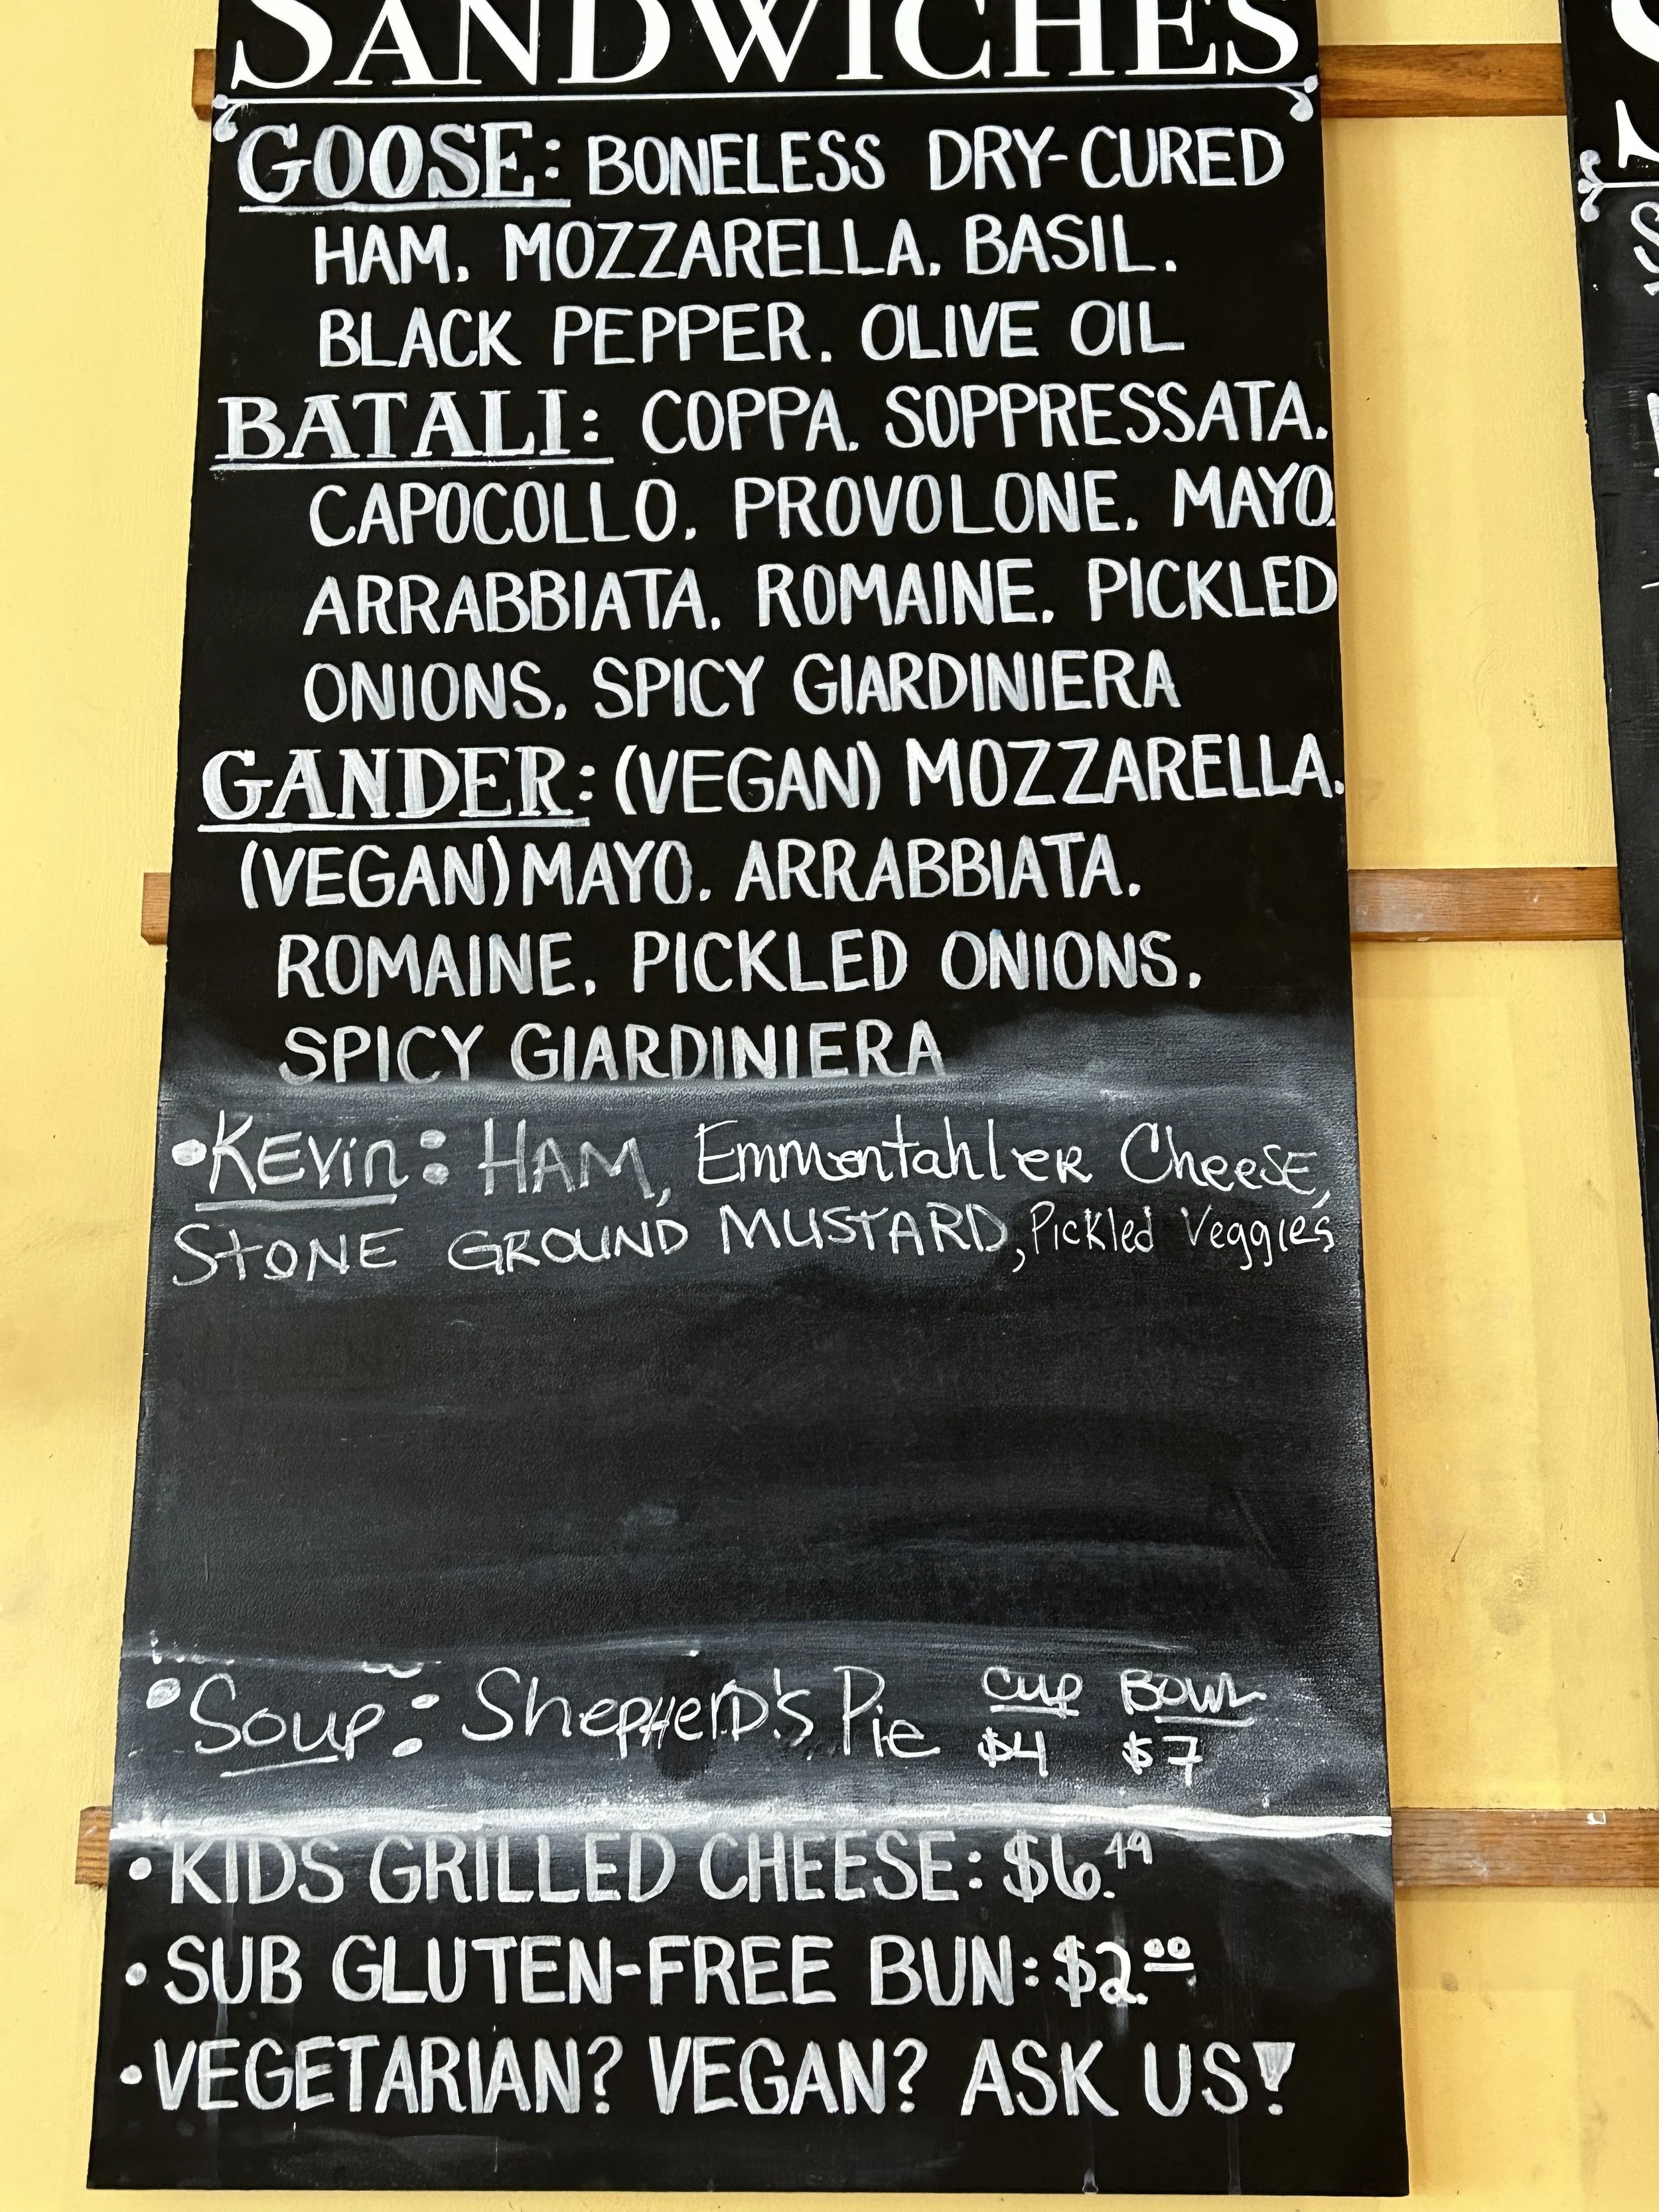 SANDWICHES
GOOSE: BONELESS DRY-CURED
HAM, MOZZARELLA, BASIL,
BLACK PEPPER, OLIVE OIL
BATALI: COPPA, SOPPRESSATA,
CAPOCOLLO, PROVOLONE, MAYO,
ARRABBIATA, ROMAINE, PICKLED
ONIONS, SPICY GIARDINIERA
GANDER: (VEGAN) MOZZARELLA,
(VEGAN) MAYO, ARRABBIATA,
ROMAINE, PICKLED ONIONS,
SPICY GIARDINIERA
•KEVin: HAM, Emmentahler Cheese,
STONE GROUND MUSTARD, Pickled Veggies
•Soup: Shepherd's Pie Cup Bowl
$4 $7
•KIDS GRILLED CHEESE: $6.49
•SUB GLUTEN-FREE BUN: $2.00
•VEGETARIAN? VEGAN? ASK US!